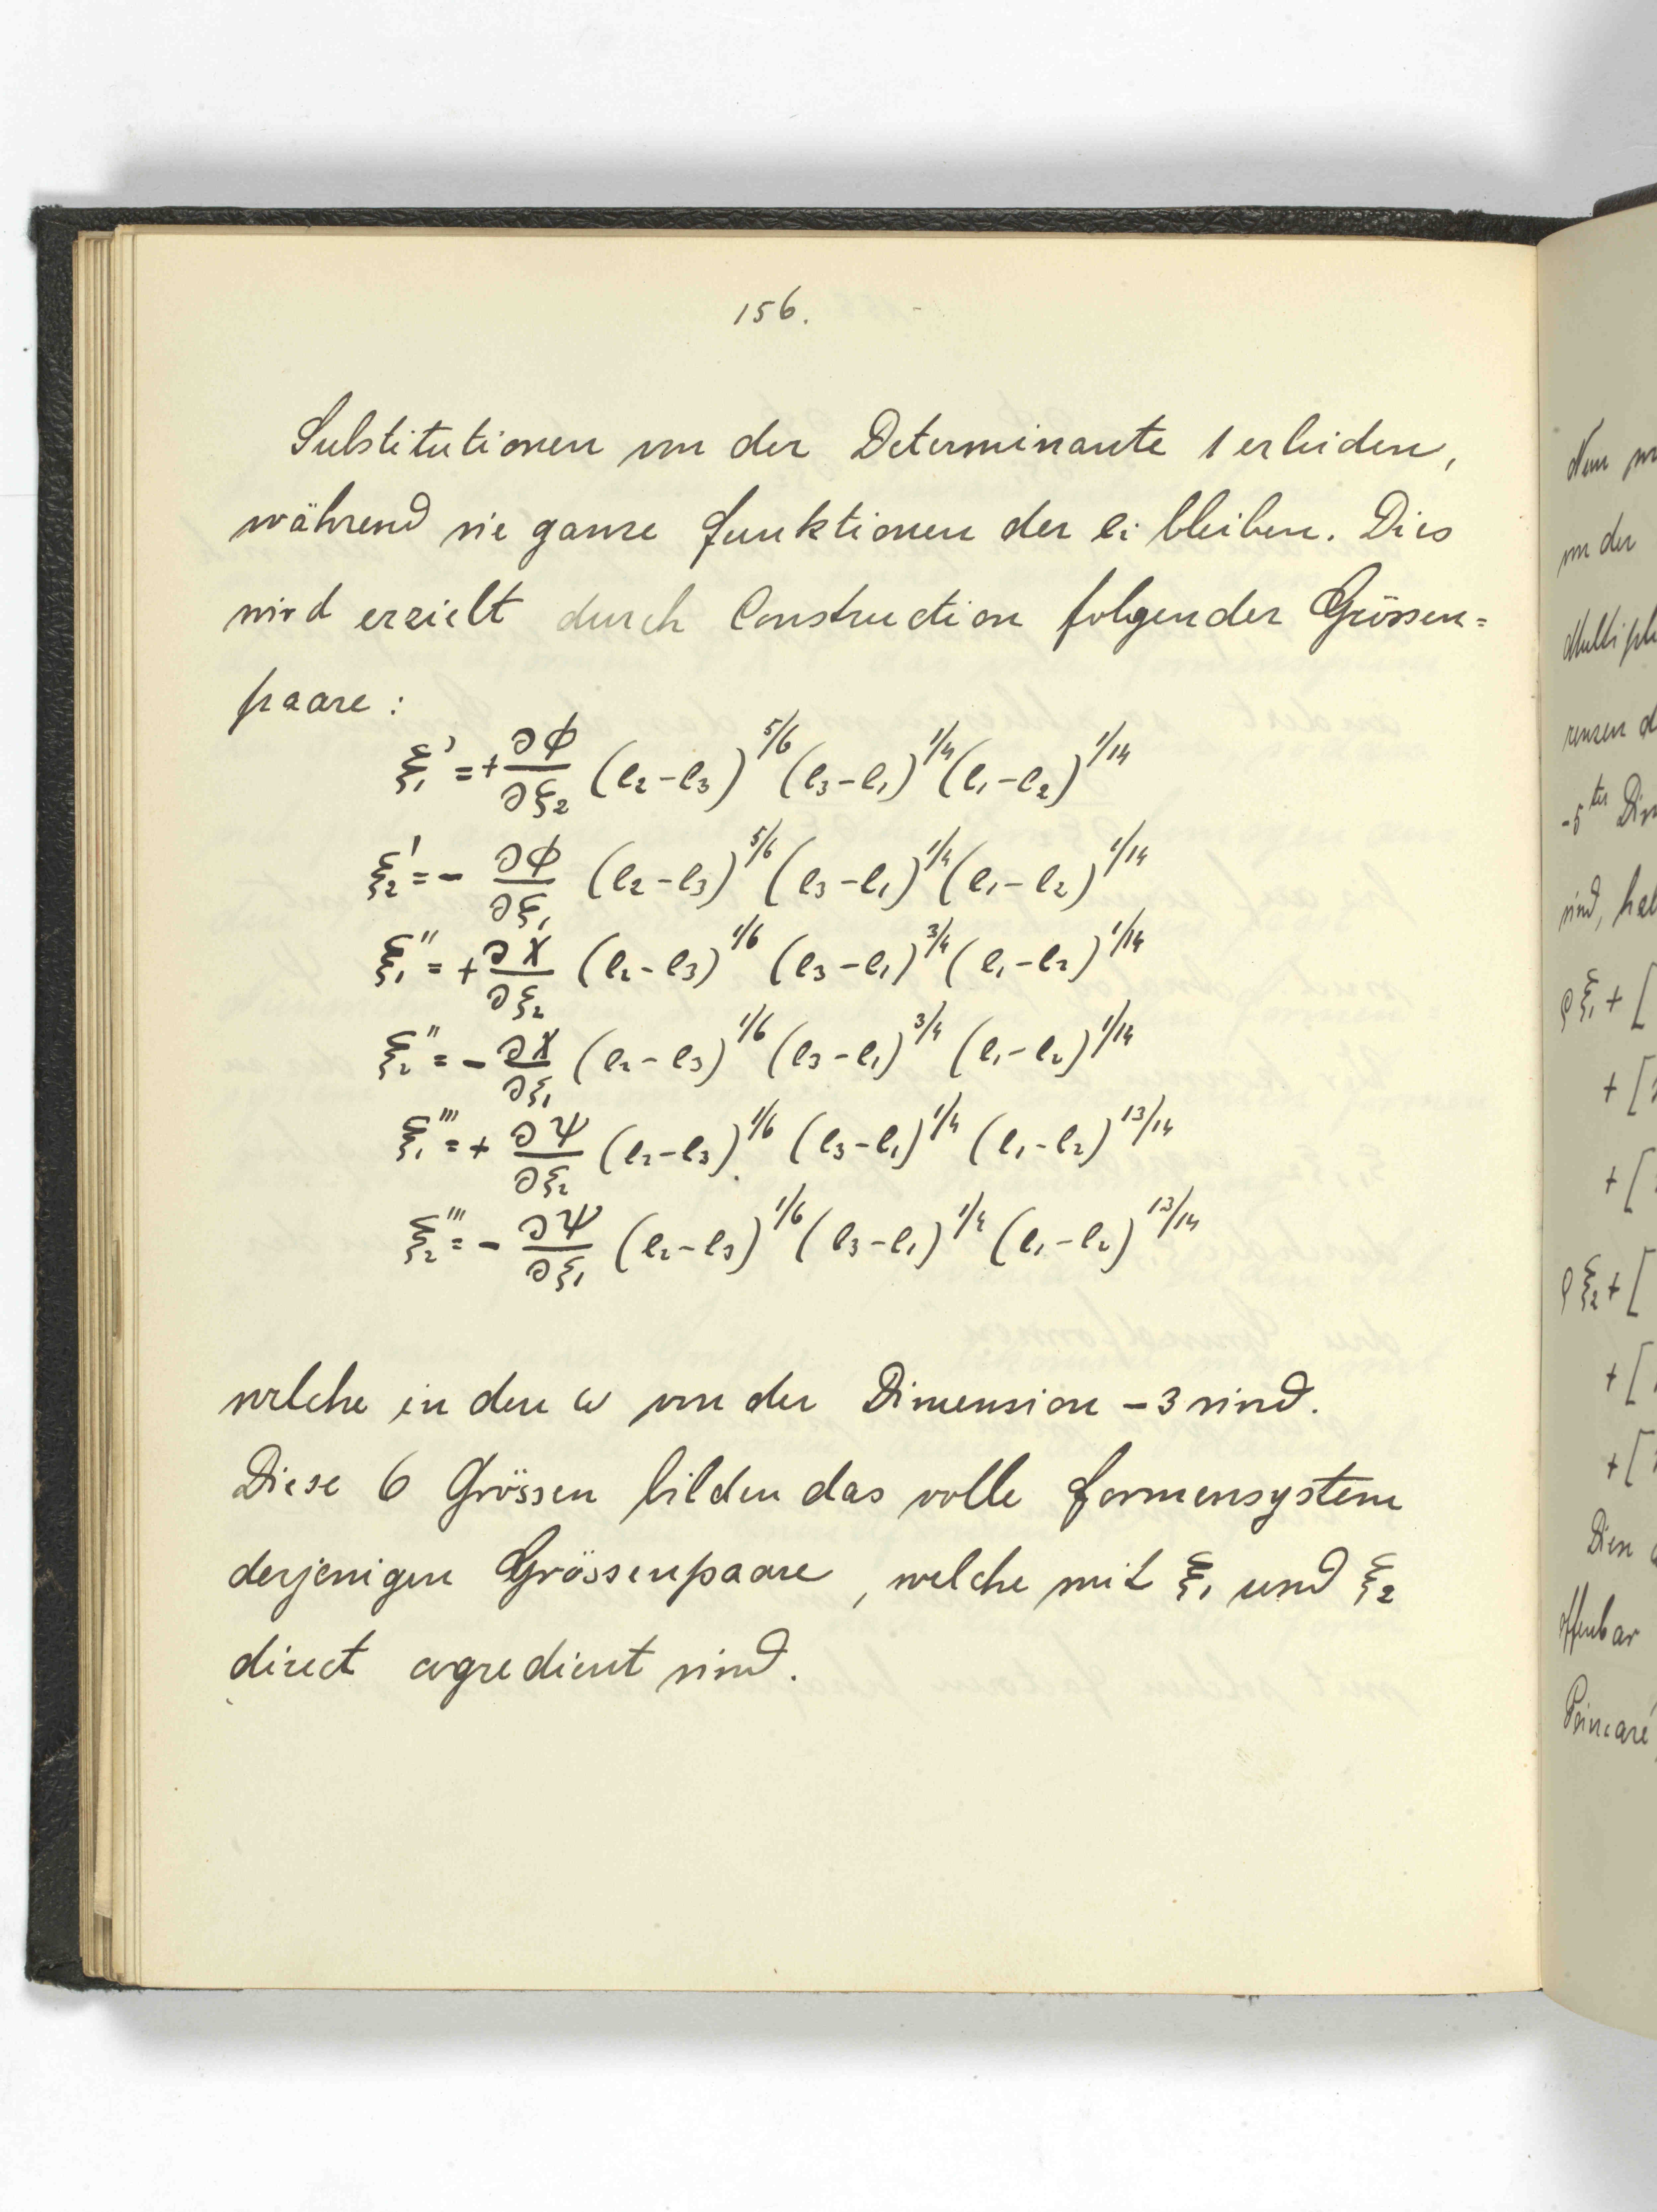 156.
Substitutionen von der Determinante 1 erleiden,
während sie ganze Funktionen der ei bleiben. Dies
wird erzielt durch Construction folgender Grössen=
paare:
ξ₁' = + ∂ϕ/∂ξ₂ (e₂-e₃)^5/6 (e₃-e₁)^1/4 (e₁-e₂)^1/14
ξ₂' = - ∂ϕ/∂ξ₁ (e₂-e₃)^5/6 (e₃-e₁)^1/4 (e₁-e₂)^1/14
ξ₁'' = + ∂χ/∂ξ₂ (e₂-e₃)^1/6 (e₃-e₁)^3/4 (e₁-e₂)^1/14
ξ₂'' = - ∂χ/∂ξ₁ (e₂-e₃)^1/6 (e₃-e₁)^3/4 (e₁-e₂)^1/14
ξ₁''' = + ∂ψ/∂ξ₂ (e₂-e₃)^1/6 (e₃-e₁)^1/4 (e₁-e₂)^13/14
ξ₂''' = - ∂ψ/∂ξ₁ (e₂-e₃)^1/6 (e₃-e₁)^1/4 (e₁-e₂)^13/14
welche in den ω von der Dimension -3 sind.
Diese 6 Grössen bilden das volle Formensystem
derjenigen Grössenpaare, welche mit ξ₁ und ξ₂
direct cogredient sind.
Nun
von der
-5ter
sind,
ρξ₁ + [
+ [
+ [
ρξ₂ + [
+ [
+ [
offenbar
Poincaré